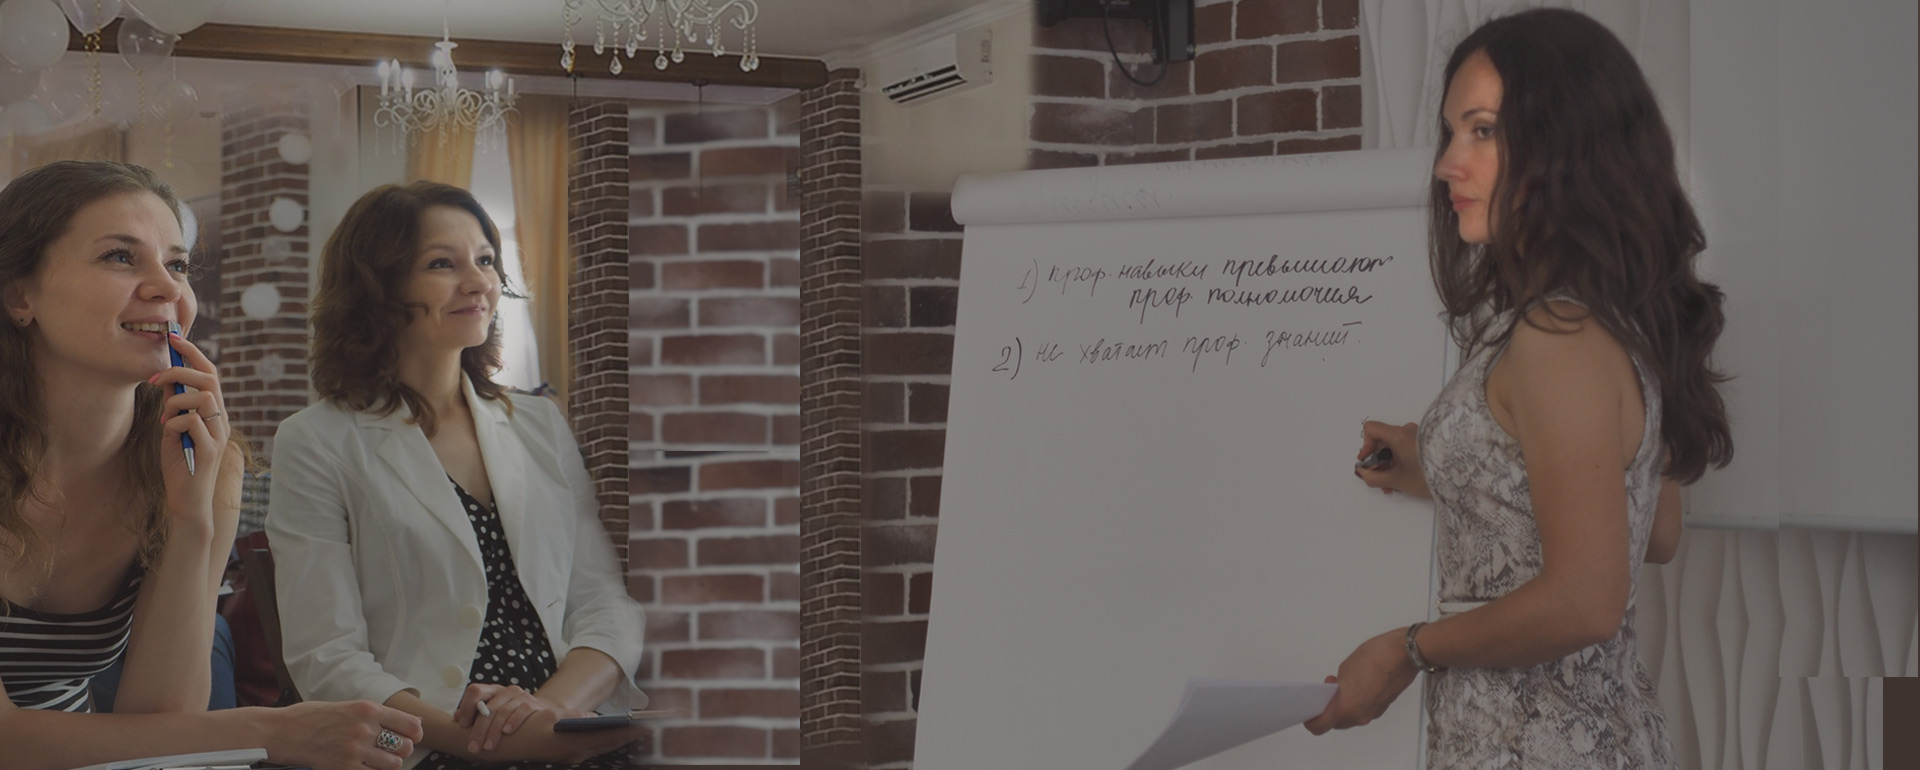 1) проф. навыки превышают
проф. полномочия
2) не хватает проф. знаний.